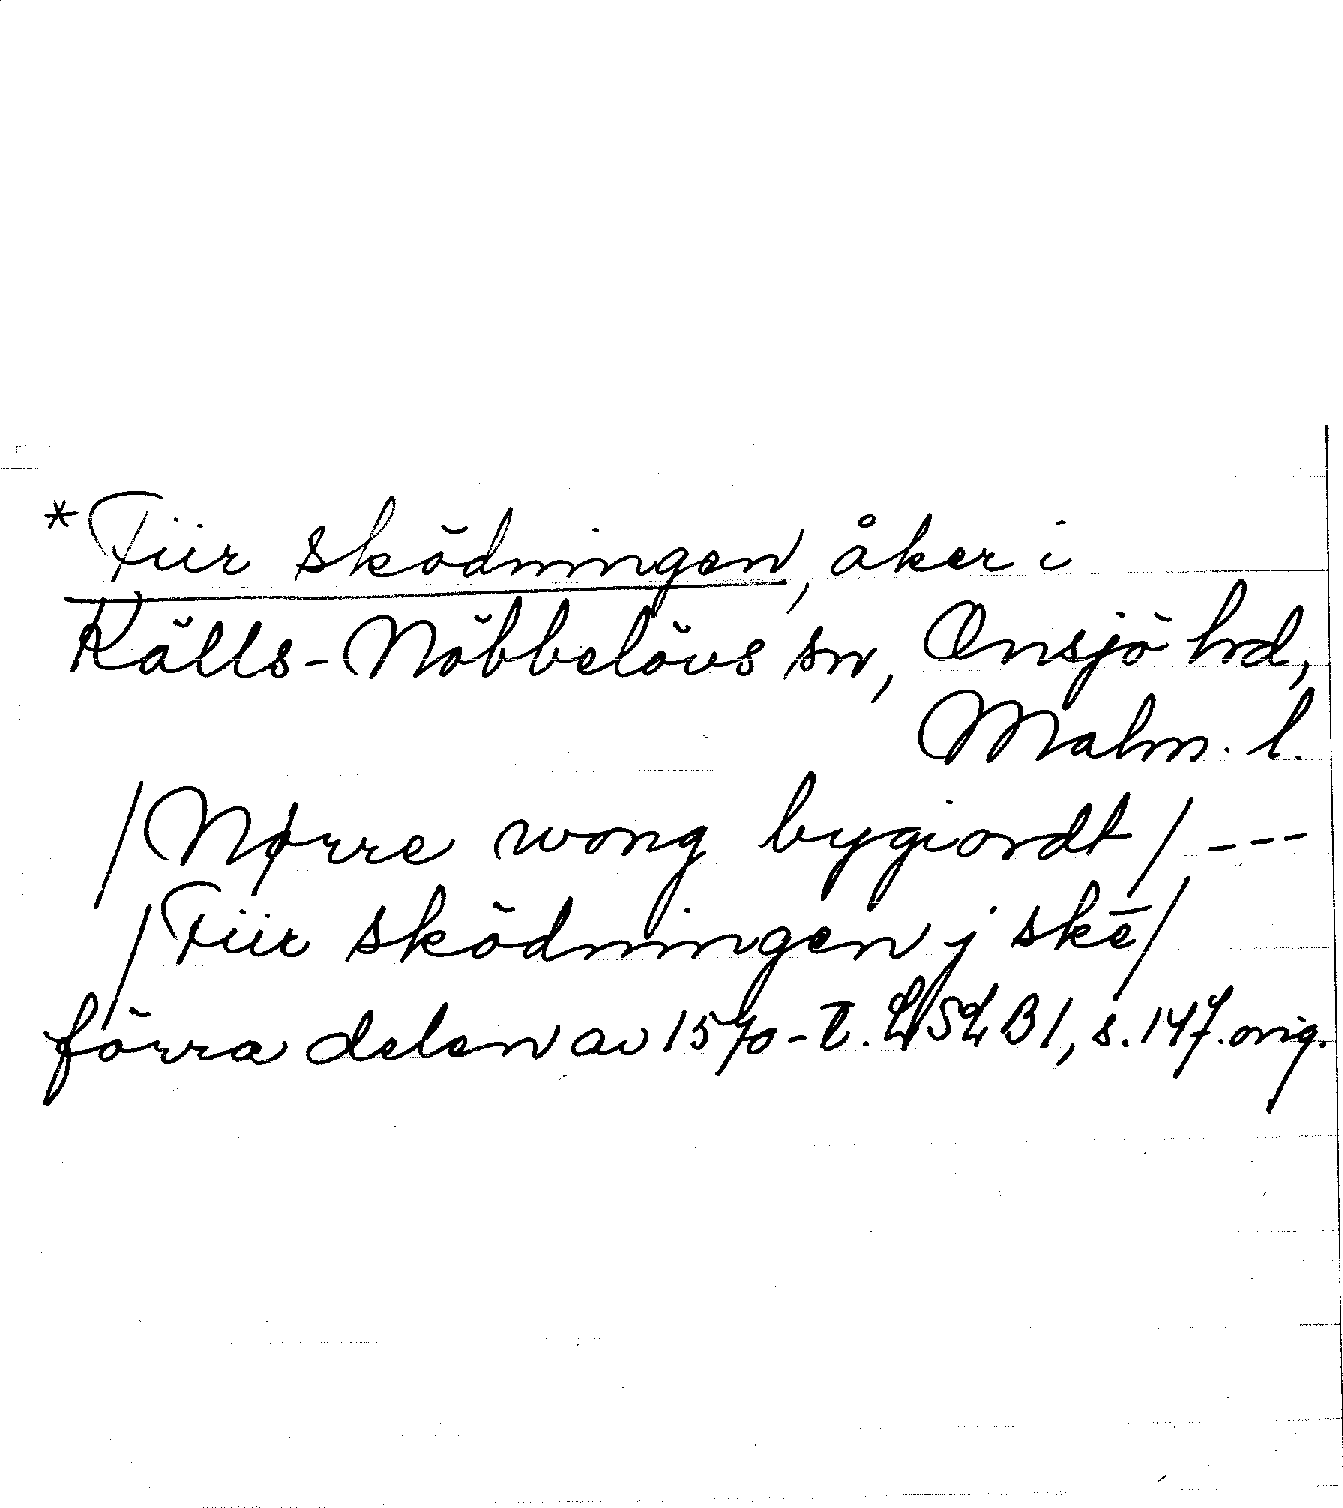 *Fiir sködningen, åker i
Källs-Nöbbelövs sn, Onsjö hrd,
Malm. l.
/Nørre wong bygiordt/ ---
/Fiir sködningen j skē/
förra delen av 1570-t. LSL BI, s. 147. orig.